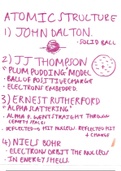 ATOMIC STRUCTURE
1) JOHN DALTON.
- SOLID BALL
2) JJ THOMPSON
"PLUM PUDDING" MODEL
- BALL OF POSITIVE CHARGE
- ELECTRONS EMBEDDED.
3) ERNEST RUTHERFORD
"ALPHA SCATTERING"
- ALPHA P. WENT STRAIGHT THROUGH
(EMPTY SPACE)
- DEFLECTED → HIT NUCLEUS REFLECTED HIT
& CHANGE
4) NIELS BOHR
- ELECTRONS ORBIT THE NUCLEUS
- IN ENERGY SHELLS